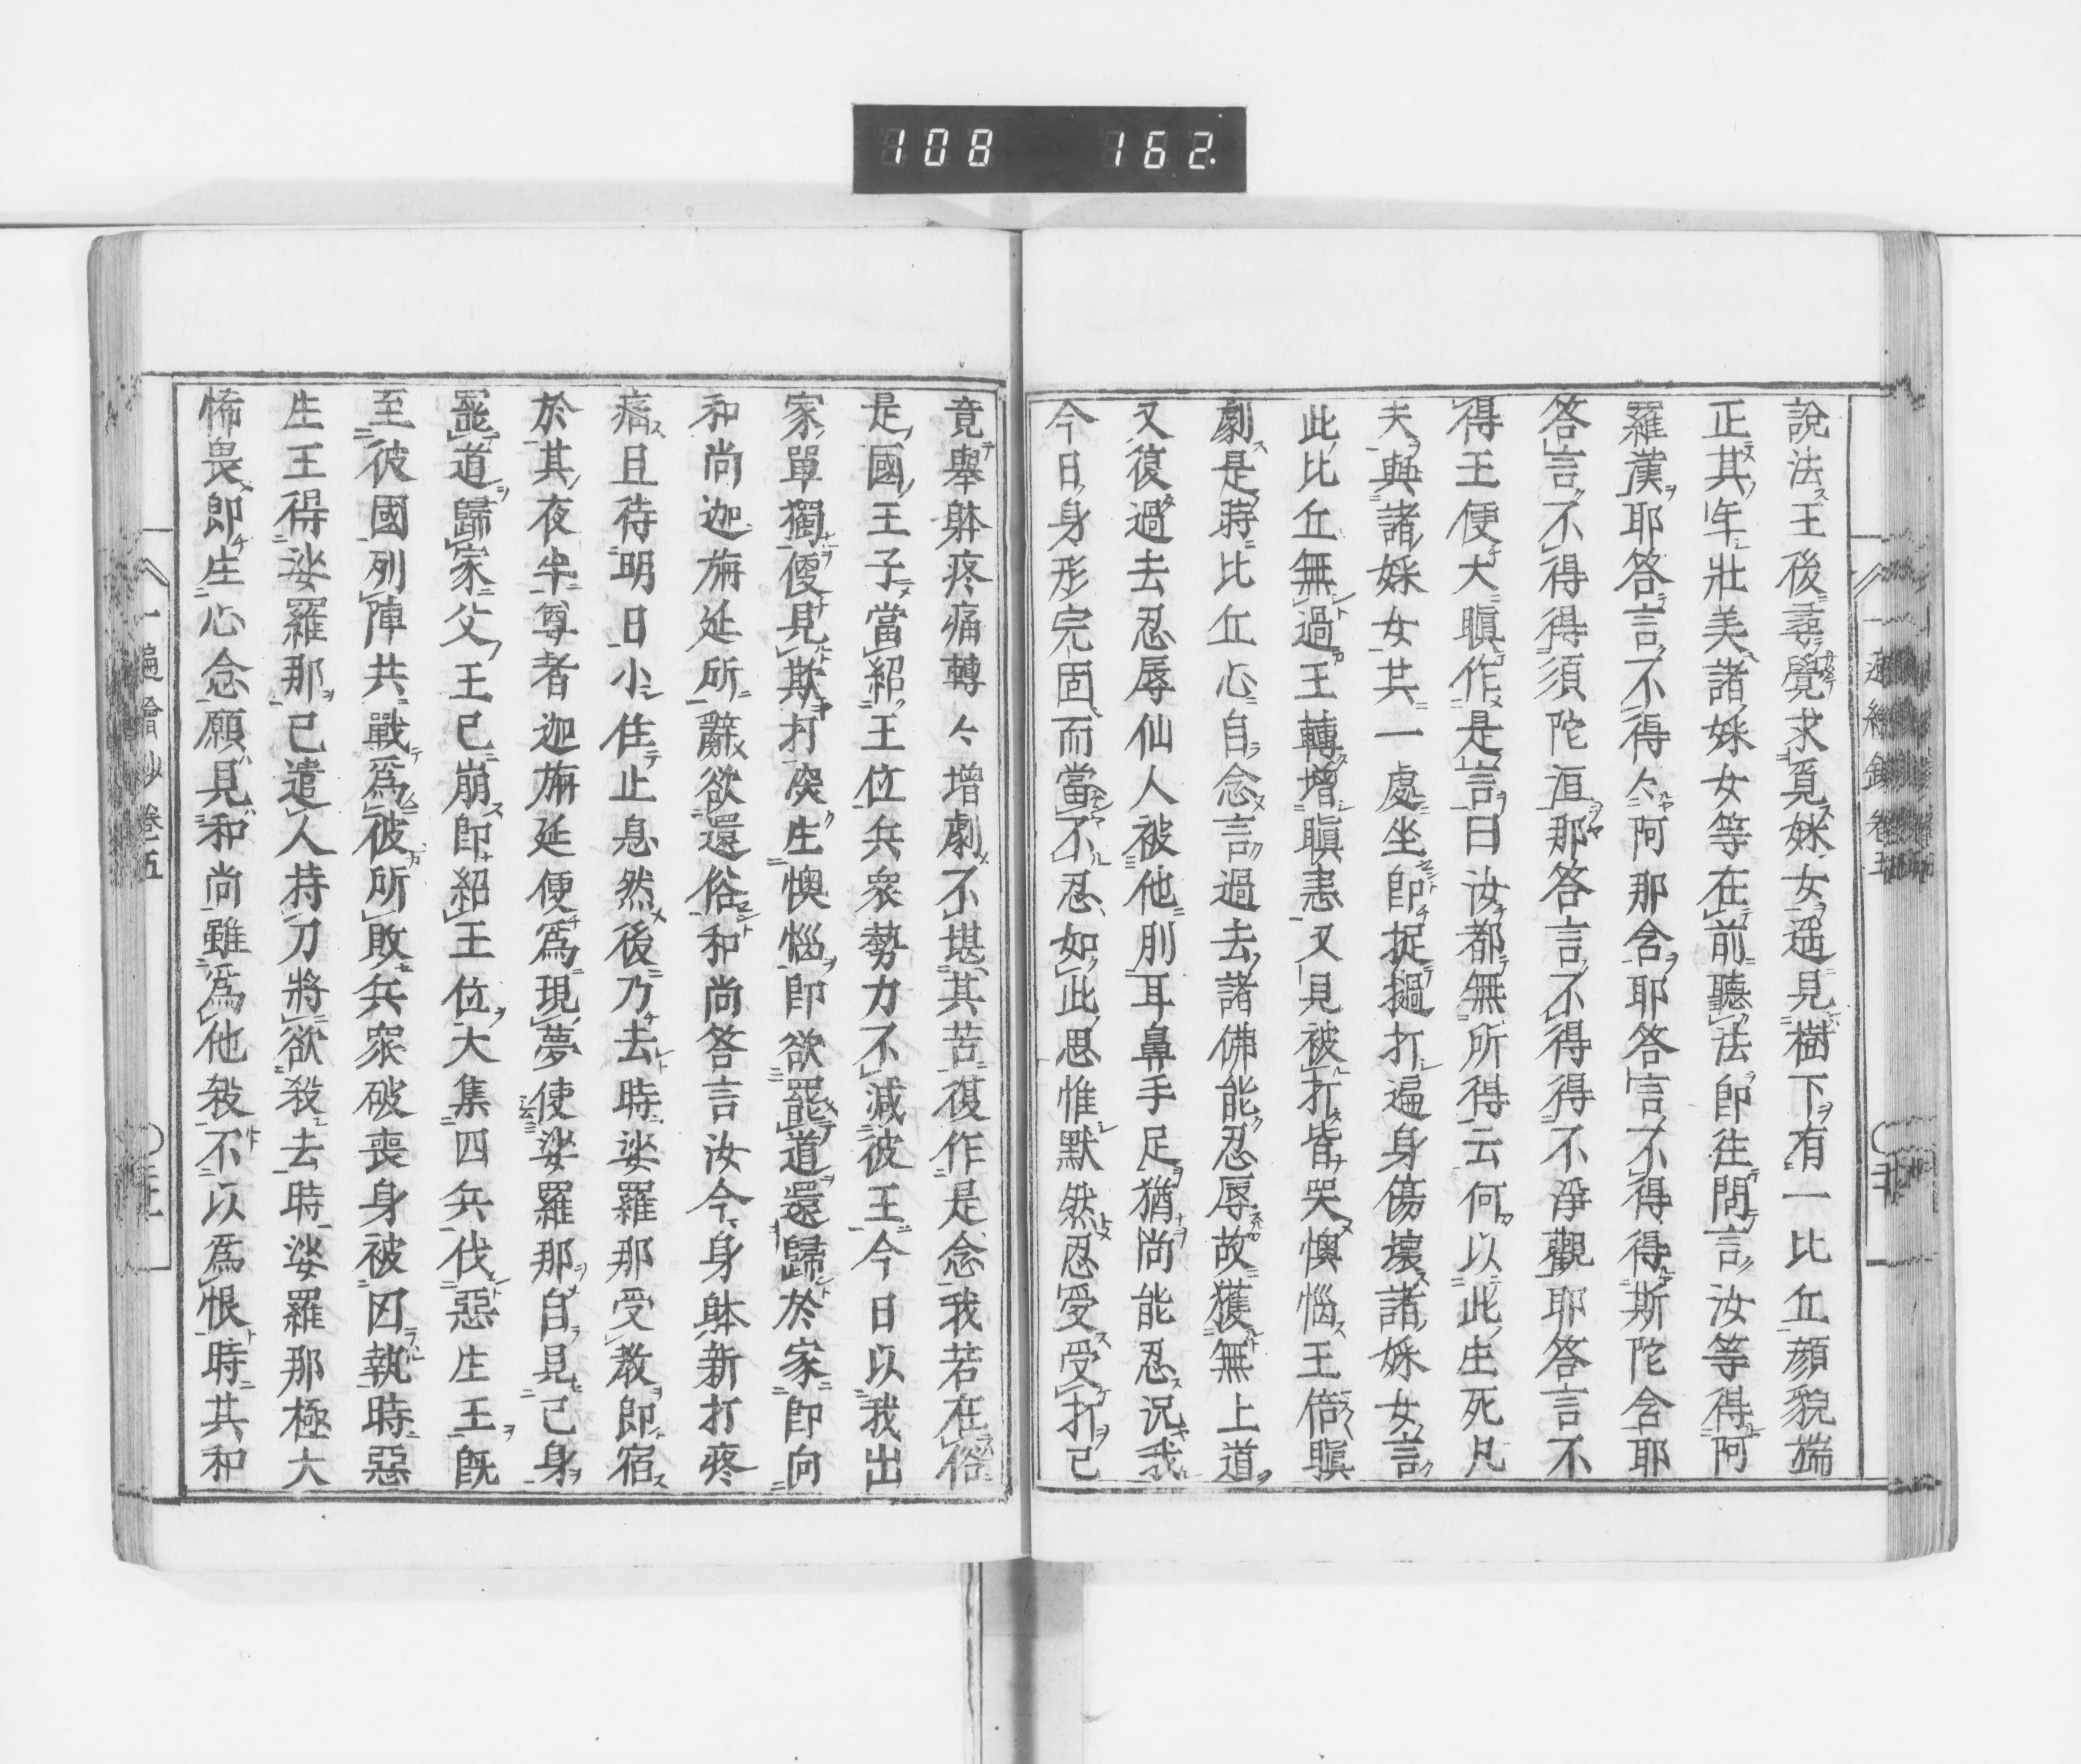 108 162
說法王後尋覺求覓婇女遥見樹下有一比丘顔貌端
正其年壯美諸婇女等在前聽法即往問言汝等得阿
羅漢耶答言不得々阿那含耶答言不得得斯陀含耶
答言不得得須陀洹那答言不得得不淨觀耶答言不
得王便大瞋作是言曰汝都無所得云何以此生死凡
夫與諸婇女共一處坐即捉撾打遍身傷壞諸婇女言
此比丘無過王轉增瞋恚又見被打皆哭懊惱王倍瞋
劇是時比丘心自念言過去諸佛能忍辱故獲無上道
又復過去忍辱仙人被他刖耳鼻手足猶尚能忍況我
今日身形完固而當不忍如此思惟默然忍受受打已
竟舉躰疼痛轉々增劇不堪其苦復作是念我若在俗
是國王子當紹王位兵衆勢力不減彼王今日以我出
家單獨便見欺打突生懊惱即欲罷道還歸於家即向
和尚迦旃延所辭欲還俗和尚答言汝今身躰新打疼
痛且待明日小住止息然後乃去時娑羅那受敎即宿
於其夜半尊者迦旃延便爲現夢使娑羅那自見己身
罷道歸家父王已崩即紹王位大集四兵伐惡生王既
至彼國列陣共戰爲彼所敗兵衆破喪身被囚執時惡
生王得娑羅那已遣人持刀將欲殺去時娑羅那極大
怖畏即生心念願見和尚雖爲他殺不以爲恨時其和
一遍繪抄卷五